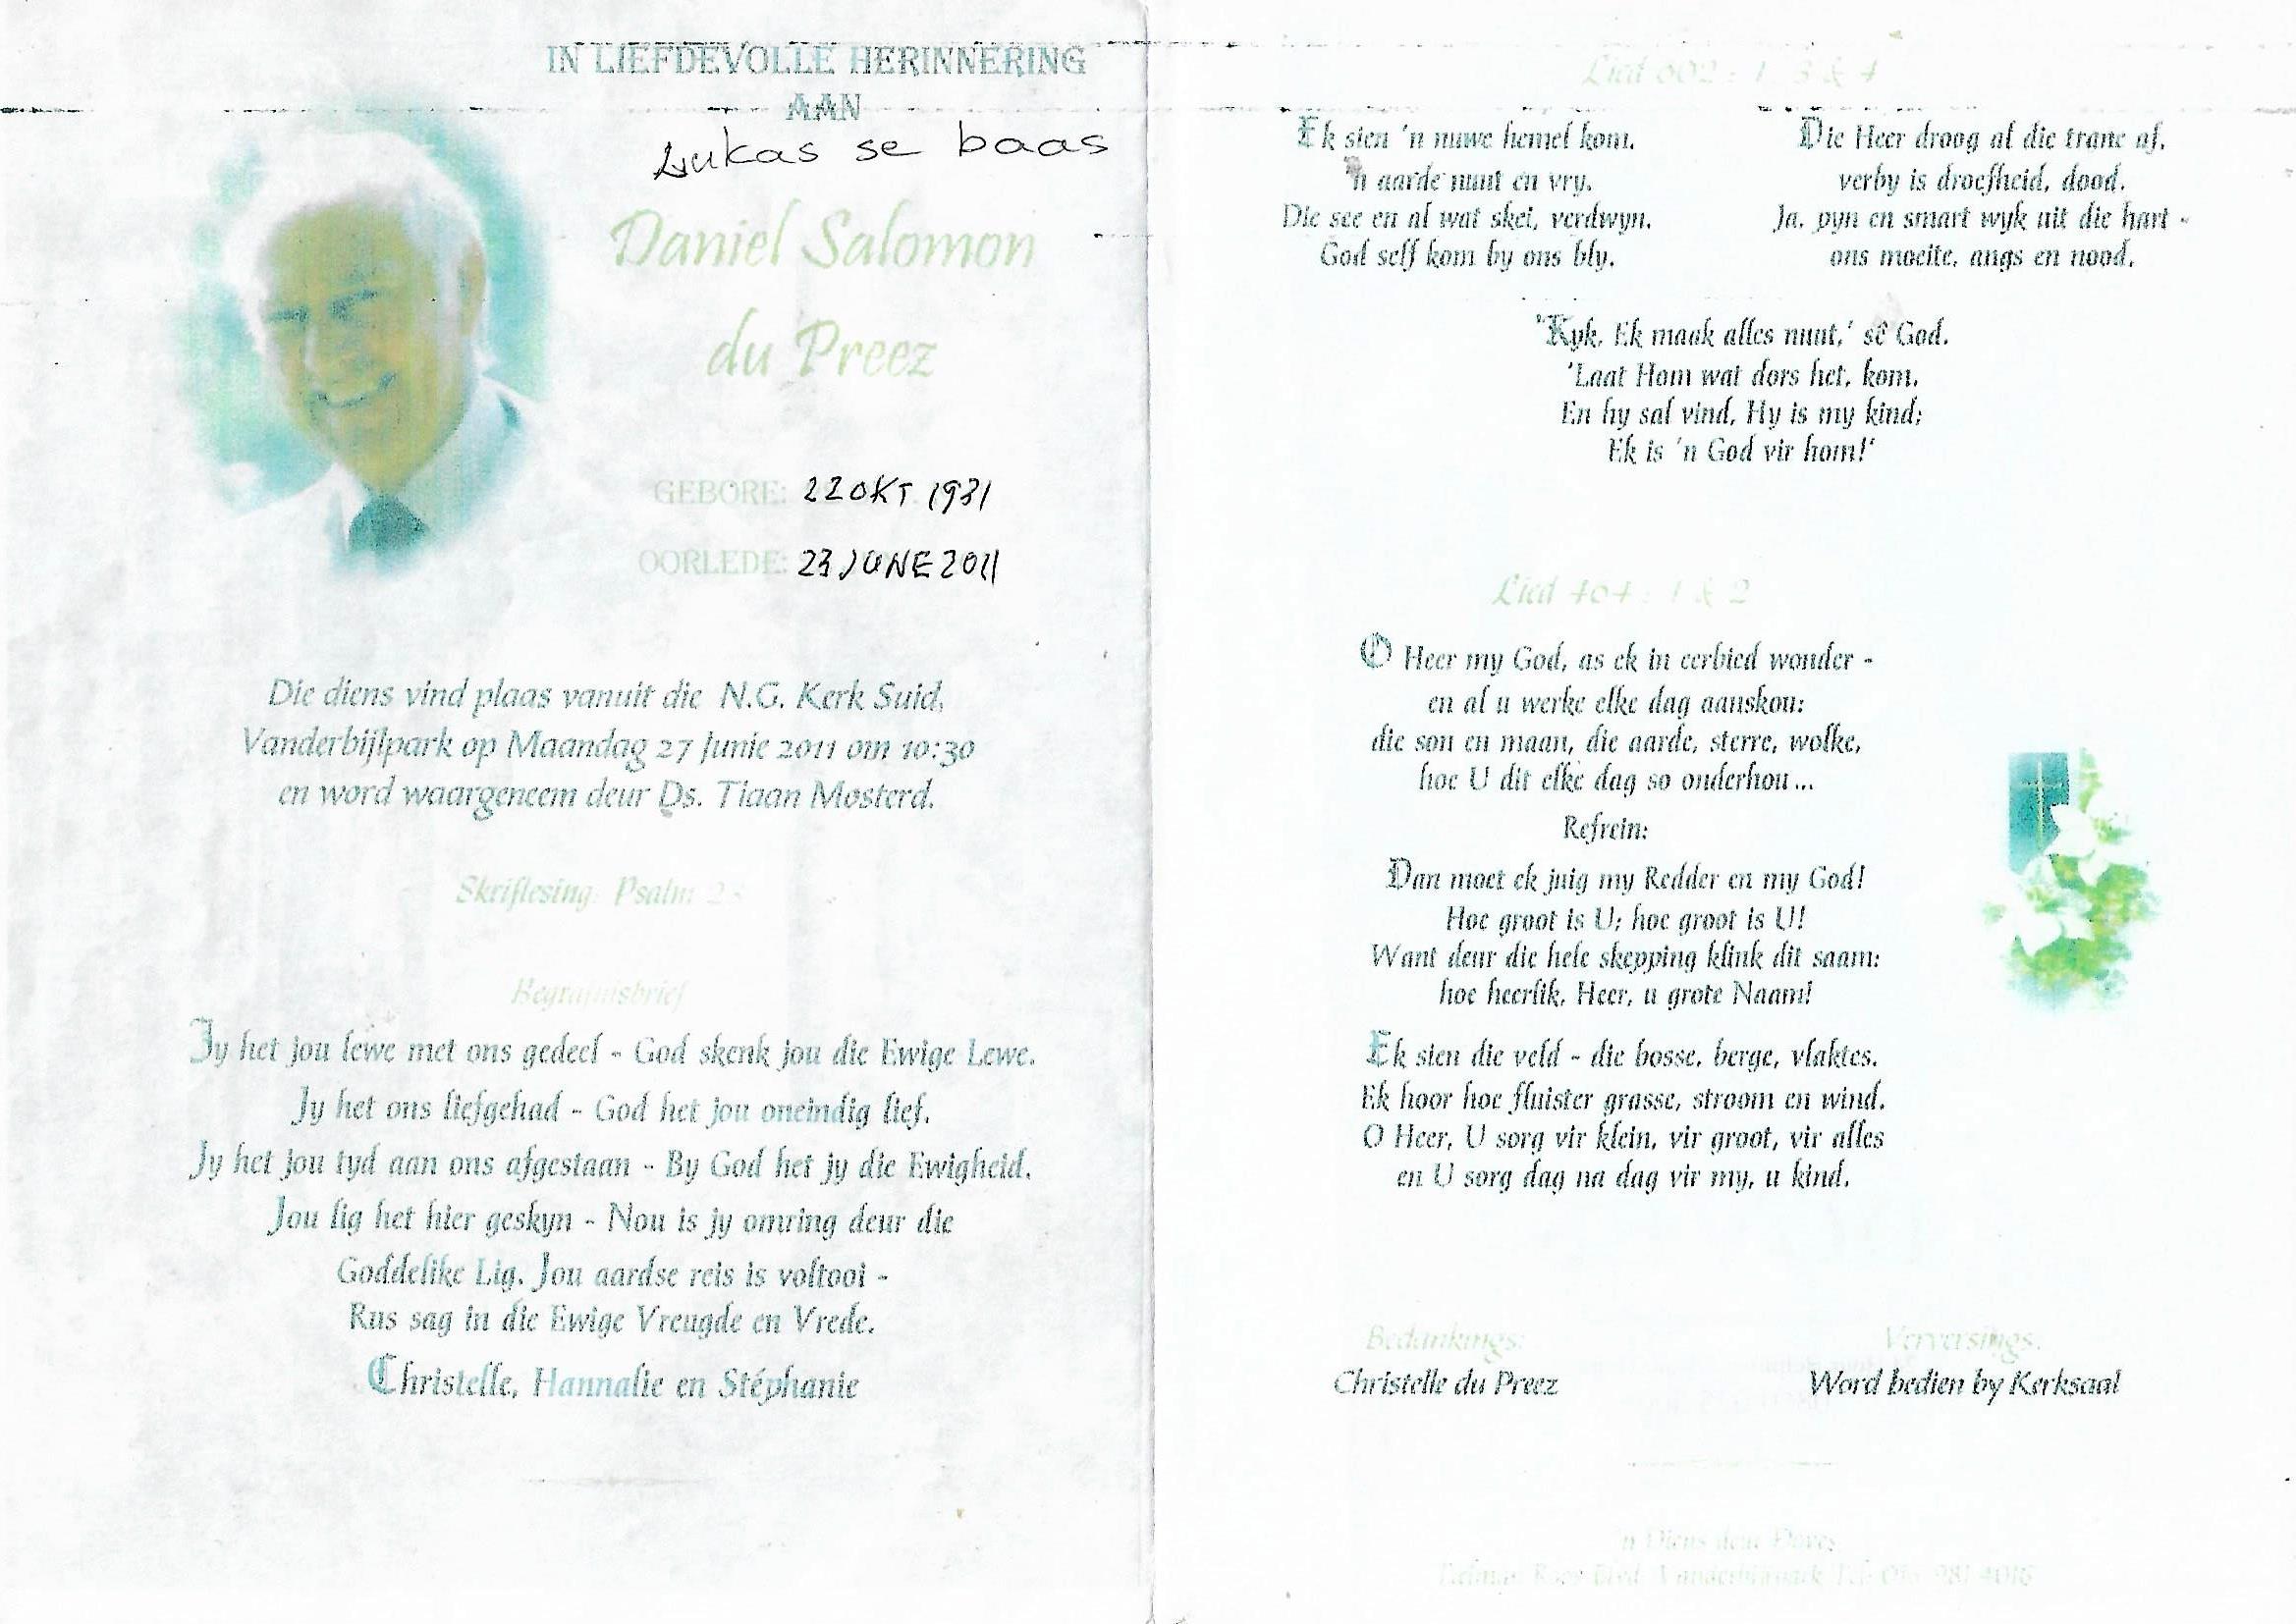 IN LIEFDEVOLLE HERINNERING
AAN
Lukas se baas
Daniel Salomon
du Preez
GEBORE: 22 OKT 1931
OORLEDE: 23 JUNE 2011
Die diens vind plaas vanuit die N.G. Kerk Suid,
Vanderbijlpark op Maandag 27 Junie 2011 om 10:30
en word waargeneem deur Ds. Tiaan Mosterd.
Skriflesing: Psalm
Begrafnisbrief
Jy het jou lewe met ons gedeel - God skenk jou die Ewige Lewe.
Jy het ons liefgehad - God het jou oneindig lief.
Jy het jou tyd aan ons afgestaan - By God het jy die Ewigheid.
Jou lig het hier geskyn - Nou is jy omring deur die
Goddelike Lig. Jou aardse reis is voltooi -
Rus sag in die Ewige Vreugde en Vrede.
Christelle, Hannalie en Stéphanie
Lied 602 : 1, 3 & 4
Ek sien 'n nuwe hemel kom,
'n aarde nuut en vry.
Die see en al wat skei, verdwyn.
God self kom by ons bly.
Die Heer droog al die trane af,
verby is droefheid, dood.
Ja, pyn en smart wyk uit die hart -
ons moeite, angs en nood.
"Kyk, Ek maak alles nuut,' sê God.
'Laat Hom wat dors het, kom.
En hy sal vind, Hy is my kind;
Ek is 'n God vir hom!'
Lied 404 : 1 & 2
O Heer my God, as ek in eerbied wonder -
en al u werke elke dag aanskou:
die son en maan, die aarde, sterre, wolke,
hoe U dit elke dag so onderhou...
Refrein:
Dan moet ek juig my Redder en my God!
Hoe groot is U; hoe groot is U!
Want deur die hele skepping klink dit saam:
hoe heerlik, Heer, u grote Naam!
Ek sien die veld - die bosse, berge, vlaktes.
Ek hoor hoe fluister grasse, stroom en wind.
O Heer, U sorg vir klein, vir groot, vir alles
en U sorg dag na dag vir my, u kind.
Bedankings:
Christelle du Preez
Verversings:
Word bedien by Kerksaal
'n Diens deur Doves
Vanderbijlpark Tel: